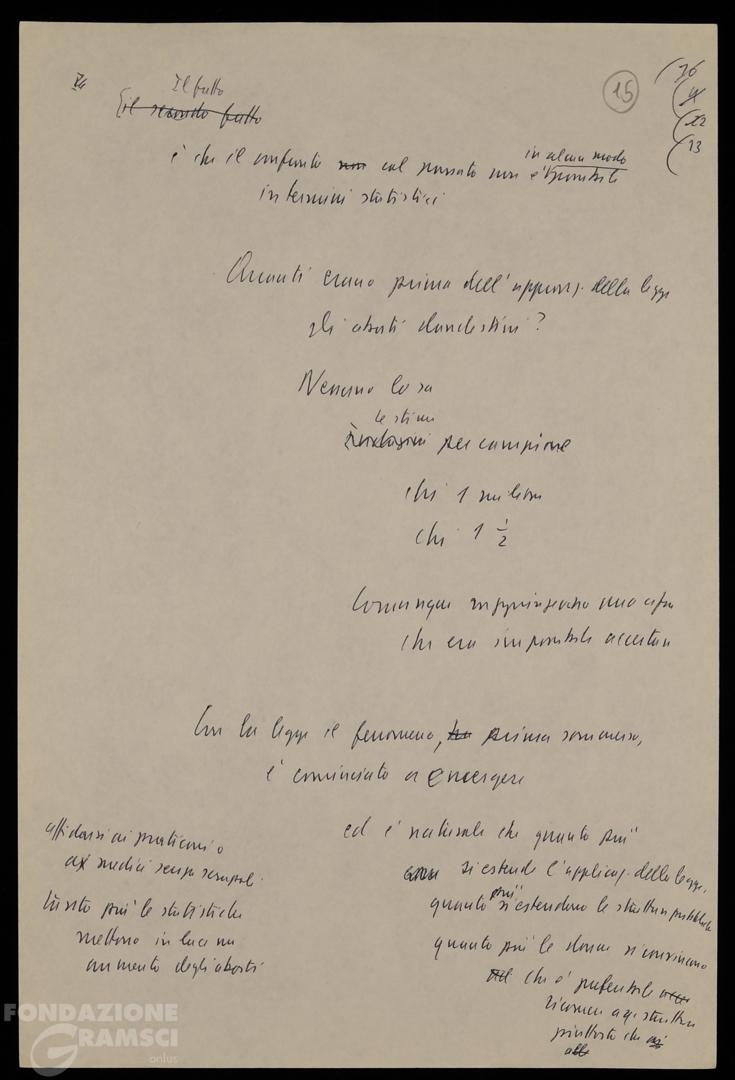 Il fatto
il secondo fatto
15
16
13
è che il confronto non col passato non è possibile
in alcun modo
in termini statistici
Quanti erano prima dell'approvaz. della legge
gli aborti clandestini?
Nessuno lo sa
le stime
per campione
chi 1 milione
chi 1 1/2
Comunque una cifra
che era impossibile accertare
Con la legge il fenomeno, ha prima sommerso,
è cominciato a emergere
ed è naturale che quanto più
si estende l'applicaz. della legge,
quanto più si estendono le strutture pubbliche
quanto più le donne si convincono
che è preferibile
ricorrere a strutture
piuttosto che
affidarsi ai praticoni o
ai medici senza scrupoli.
tanto più le statistiche
mettono in luce un
aumento degli aborti
FONDAZIONE
GRAMSCI
onlus